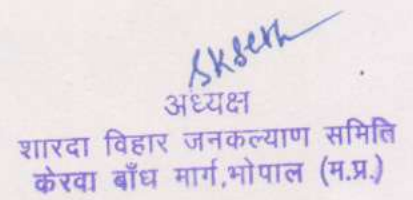 SKSeth
अध्यक्ष
शारदा विहार जनकल्याण समिति
केरवा बाँध मार्ग,भोपाल (म.प्र.)